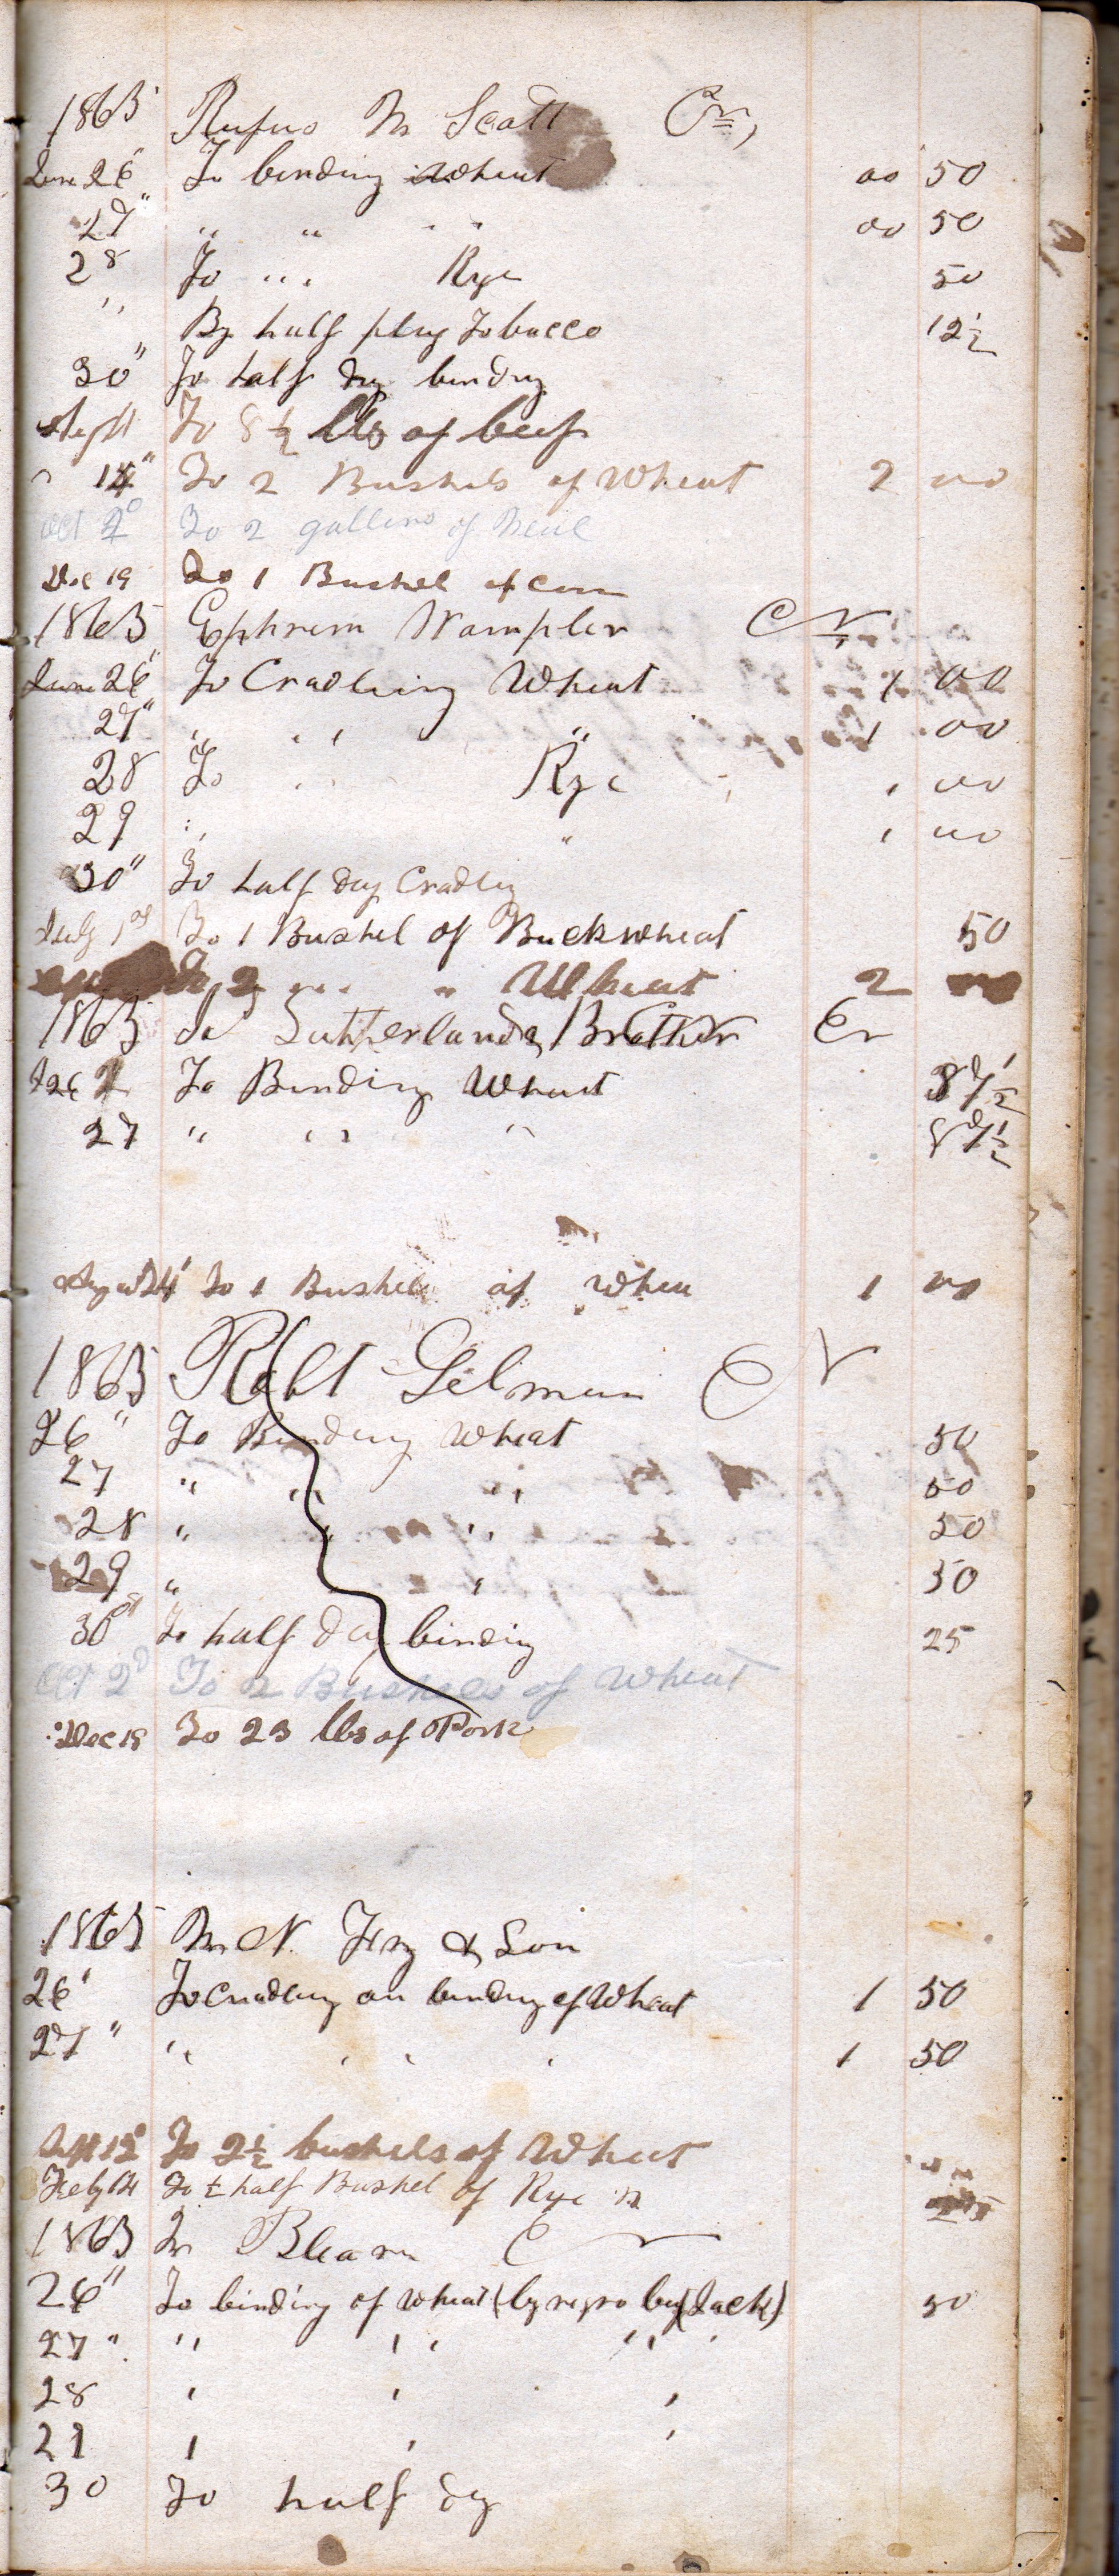 1865 Rufus M Scott Cr,
June 26" To binding Wheat 00 50
27" " " " " 00 50
28 To " " Rye 50
" By half plug Tobacco 12½
30" To half day binding
To 8½ lbs of beef
" 14" To 2 Bushels of Wheat 2 00
Oct 2d To 2 gallons of
Dec 19 To 1 Bushel of corn
1865 Ephrem Wampler Cr
June 26" To Cradling Wheat 1 00
27" " " " 1 00
28 To " Rye 1 00
29 " " 1 00
30" To half day Cradling
July 1st To 1 Bushel of Buckwheat 50
To 2 " " Wheat 2 00
1865 Sutherland & Brother Cr
26 To Binding Wheat 37½
27 " " " 37½
To 1 Bushel of Whea 1 00
1865 Robt Gelman Cr
26" To Binding Wheat 50
27 " " " 50
28 " " " 50
29 " " 50
30" To half day binding 25
Oct 2d To 2 Bushels of Wheat
Dec 19 To 23 lbs of Pork
1865 & Son
26' To cradling an binding of Wheat 1 50
27" " " " " 1 50
Sept 12d To 2½ bushels of Wheat
Feby 14 To ½ half Bushel of Rye
1865 Cr
26" To binding of wheat (by negro boy (Jack) 50
27" " " "
28 " " "
29 " " "
30 To half dy